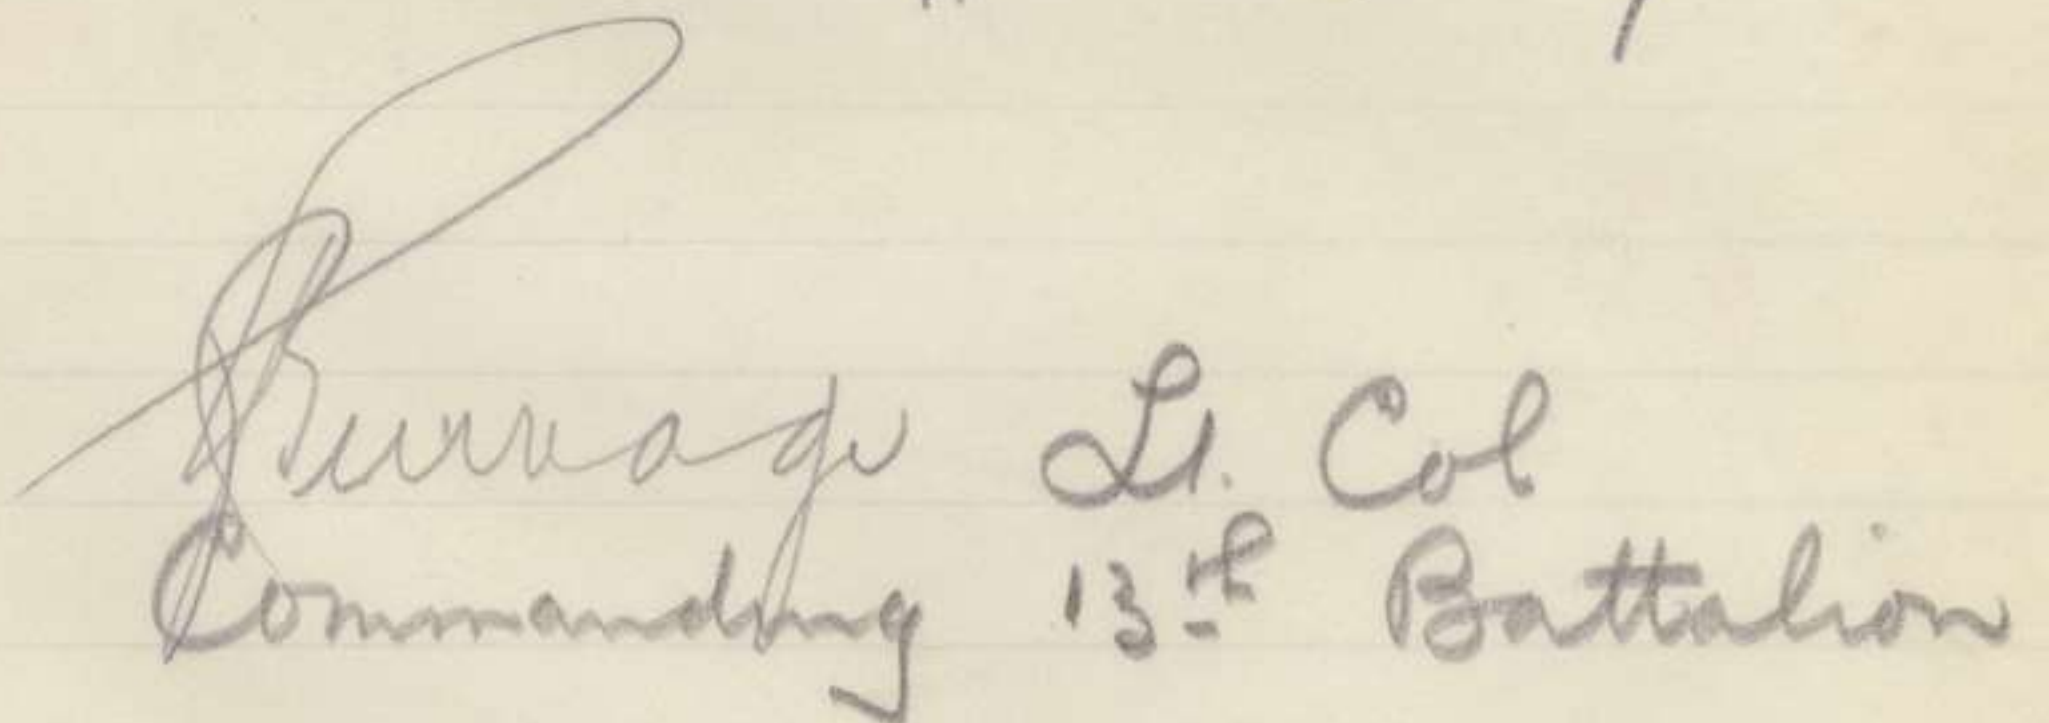 Burnage Lt. Col
Commanding 13th Battalion